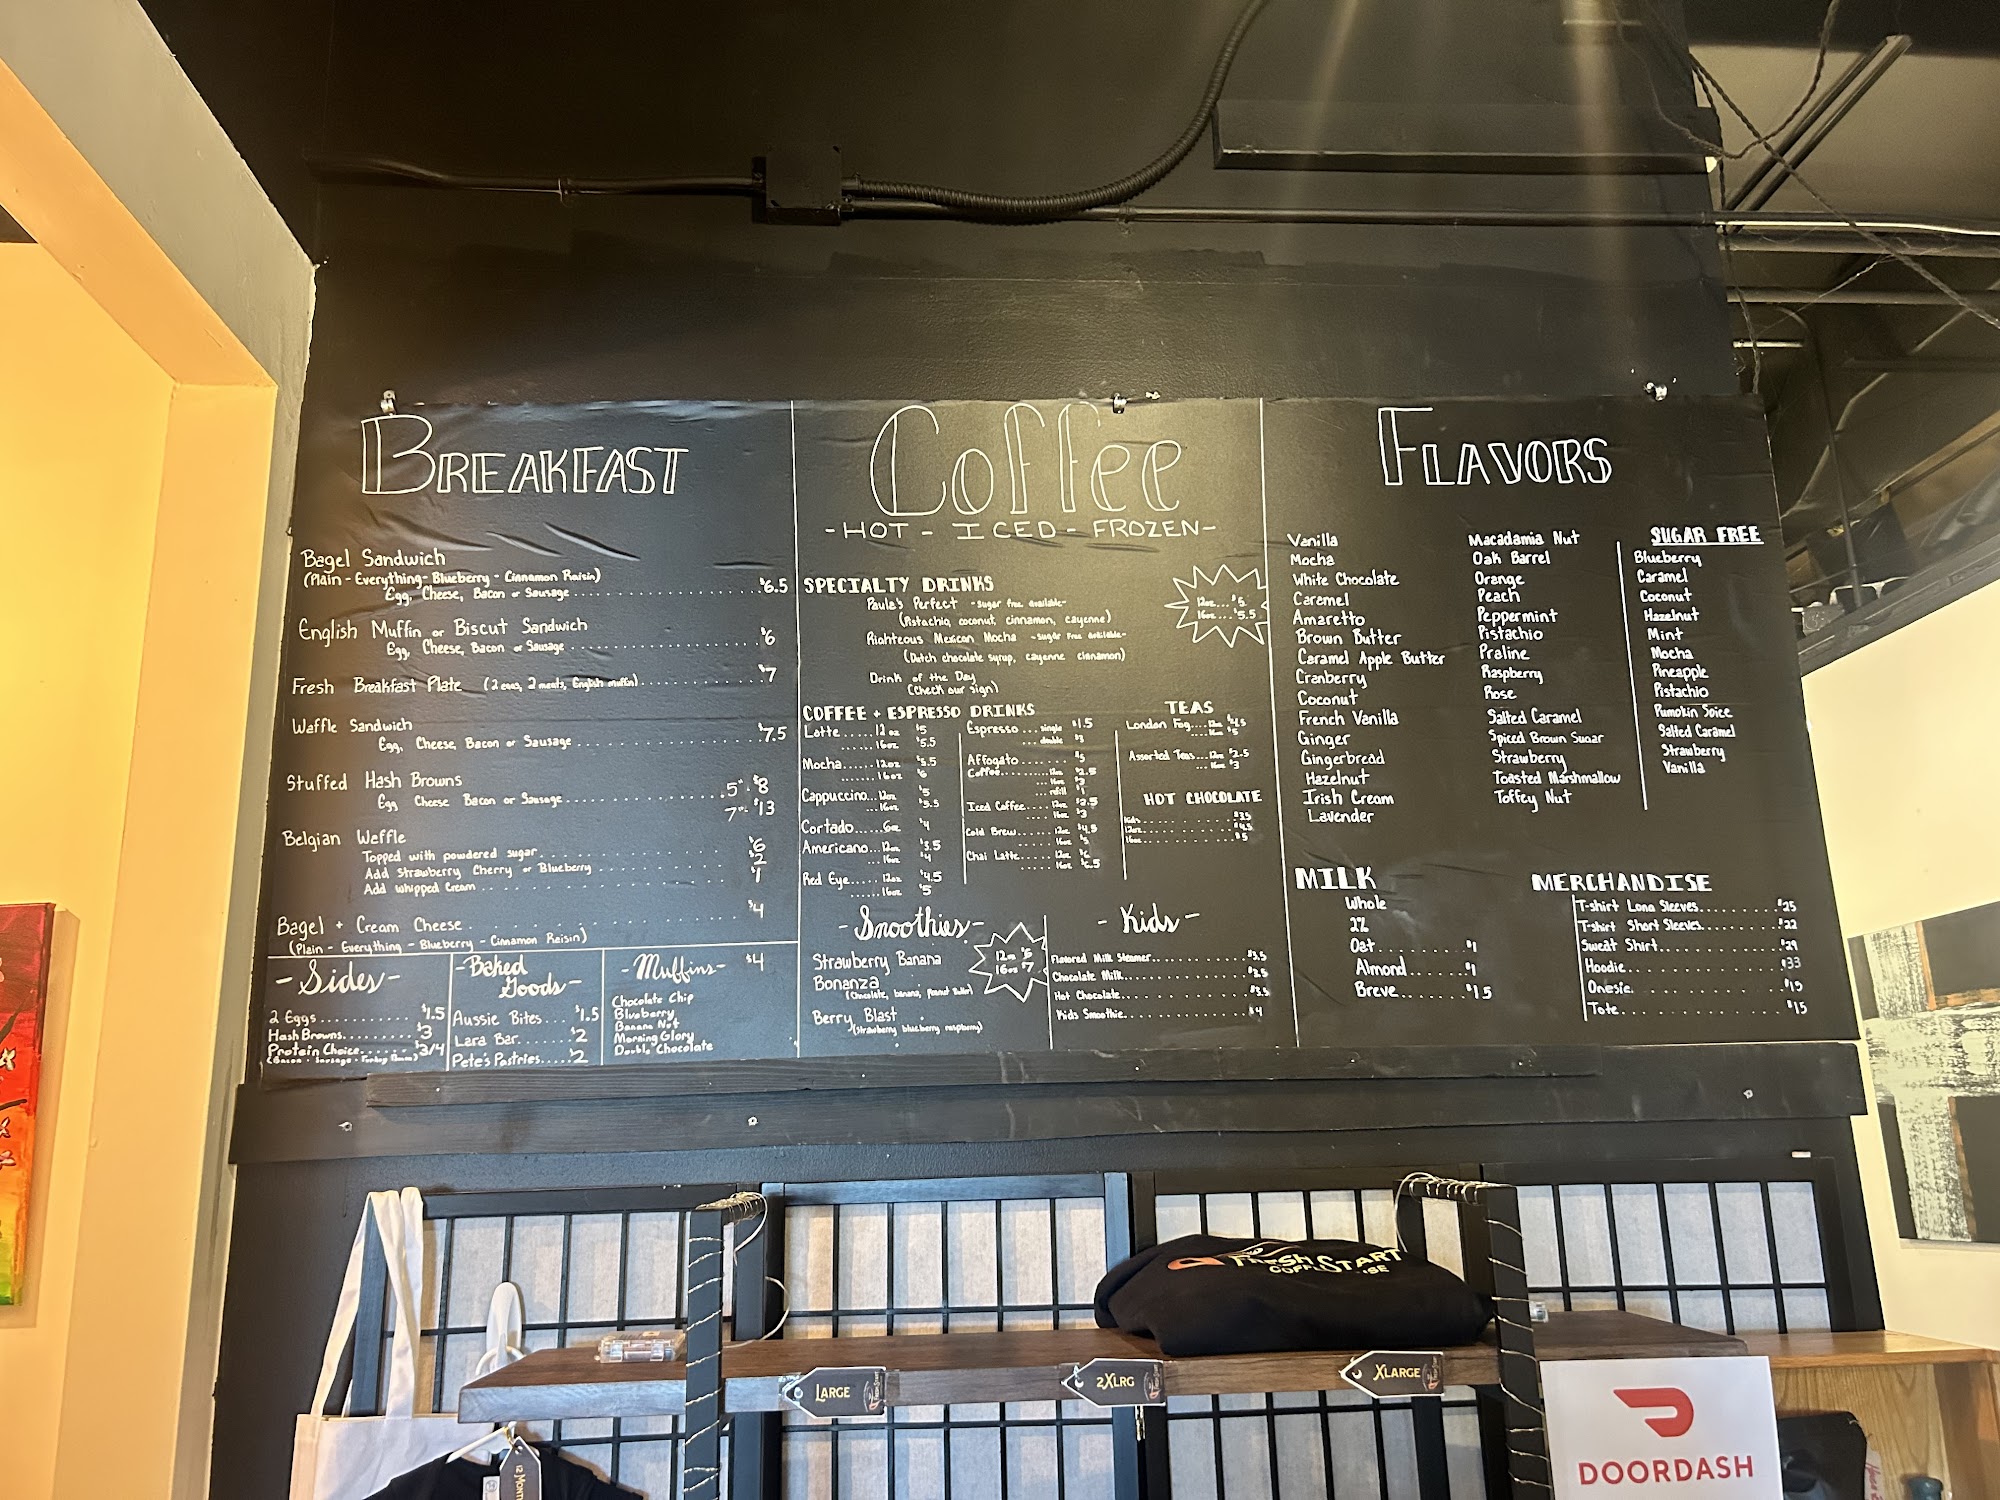 BREAKFAST
Bagel Sandwich
(Plain - Everything - Blueberry - Cinnamon Raisin)
Egg, Cheese, Bacon or Sausage ..................... $6.5
English Muffin or Biscut Sandwich
Egg, Cheese, Bacon or Sausage ..................... $6
Fresh Breakfast Plate (2 eggs, 2 meats, English muffin) ............ $7
Waffle Sandwich
Egg, Cheese, Bacon or Sausage ..................... $7.5
Stuffed Hash Browns
Egg Cheese Bacon or Sausage ..................... 5" - $8
7" - $13
Belgian Waffle
Topped with powdered sugar ..................... $6
Add Strawberry Cherry or Blueberry ............... $2
Add whipped Cream ..................... $1
Bagel + Cream Cheese ..................... $4
(Plain - Everything - Blueberry - Cinnamon Raisin)
- Sides -
2 Eggs ............ $1.5
Hash Browns ........ $3
Protein Choice ...... $3/4
(Bacon - Sausage - Turkey
- Baked Goods -
Aussie Bites ... $1.5
Lara Bar ....... $2
Pete's Pastries ..... $2
- Muffins - $4
Chocolate Chip
Blueberry
Banana Nut
Morning Glory
Double Chocolate
Coffee
- HOT - ICED - FROZEN -
SPECIALTY DRINKS
12oz ... $5
16oz ... $5.5
Paula's Perfect - sugar free available -
(Pistachio, coconut, cinnamon, cayenne)
Righteous Mexican Mocha - sugar free available -
(Dutch chocolate syrup, cayenne cinnamon)
Drink of the Day
(Check our sign)
COFFEE + ESPRESSO DRINKS
Latte ..... 12 oz $5
...... 16oz $5.5
Mocha ...... 12oz $5.5
....... 16oz $6
Cappuccino ... 12oz $5
... 16oz $5.5
Cortado ..... 6oz $4
Americano ... 12oz $3.5
... 16oz $4
Red Eye ..... 12oz $4.5
...... 16oz $5
Espresso ... single $1.5
... double $3
Affogato ....... $5
Coffee ......... 12oz $2.5
... 16oz $3
refill $1
Iced Coffee ..... 12oz $2.5
... 16oz $3
Cold Brew ...... 12oz $4.5
...... 16oz $5
Chai Latte ..... 12oz $6
...... 16oz $6.5
TEAS
London Fog .... 12oz $4.5
.... 16oz $5
Assorted Teas ... 12oz $2.5
... 16oz $3
HOT CHOCOLATE
Kids ............ $3.5
12oz ............ $4.5
16oz ............ $5
- Smoothies -
12oz $6
16oz $7
Strawberry Banana
Bonanza
(Chocolate, banana, peanut butter)
Berry Blast
(strawberry blueberry raspberry)
- Kids -
Flavored Milk Steamer ............ $3.5
Chocolate Milk ............ $2.5
Hot Chocolate ............ $3.5
Kids Smoothie ............ $4
FLAVORS
Vanilla
Mocha
White Chocolate
Caramel
Amaretto
Brown Butter
Caramel Apple Butter
Cranberry
Coconut
French Vanilla
Ginger
Gingerbread
Hazelnut
Irish Cream
Lavender
Macadamia Nut
Oak Barrel
Orange
Peach
Peppermint
Pistachio
Praline
Raspberry
Rose
Salted Caramel
Spiced Brown Sugar
Strawberry
Toasted Marshmallow
Toffey Nut
SUGAR FREE
Blueberry
Caramel
Coconut
Hazelnut
Mint
Mocha
Pineapple
Pistachio
Pumpkin Spice
Salted Caramel
Strawberry
Vanilla
MILK
Whole
2%
Oat ............ $1
Almond ......... $1
Breve ........ $1.5
MERCHANDISE
T-shirt Long Sleeves ......... $25
T-shirt Short Sleeves ......... $22
Sweat Shirt ............ $29
Hoodie ............ $33
Onesie ............ $15
Tote ............ $15
FRESH START
COFFEE
LARGE
2XLRG
XLARGE
12 MONTH
DOORDASH